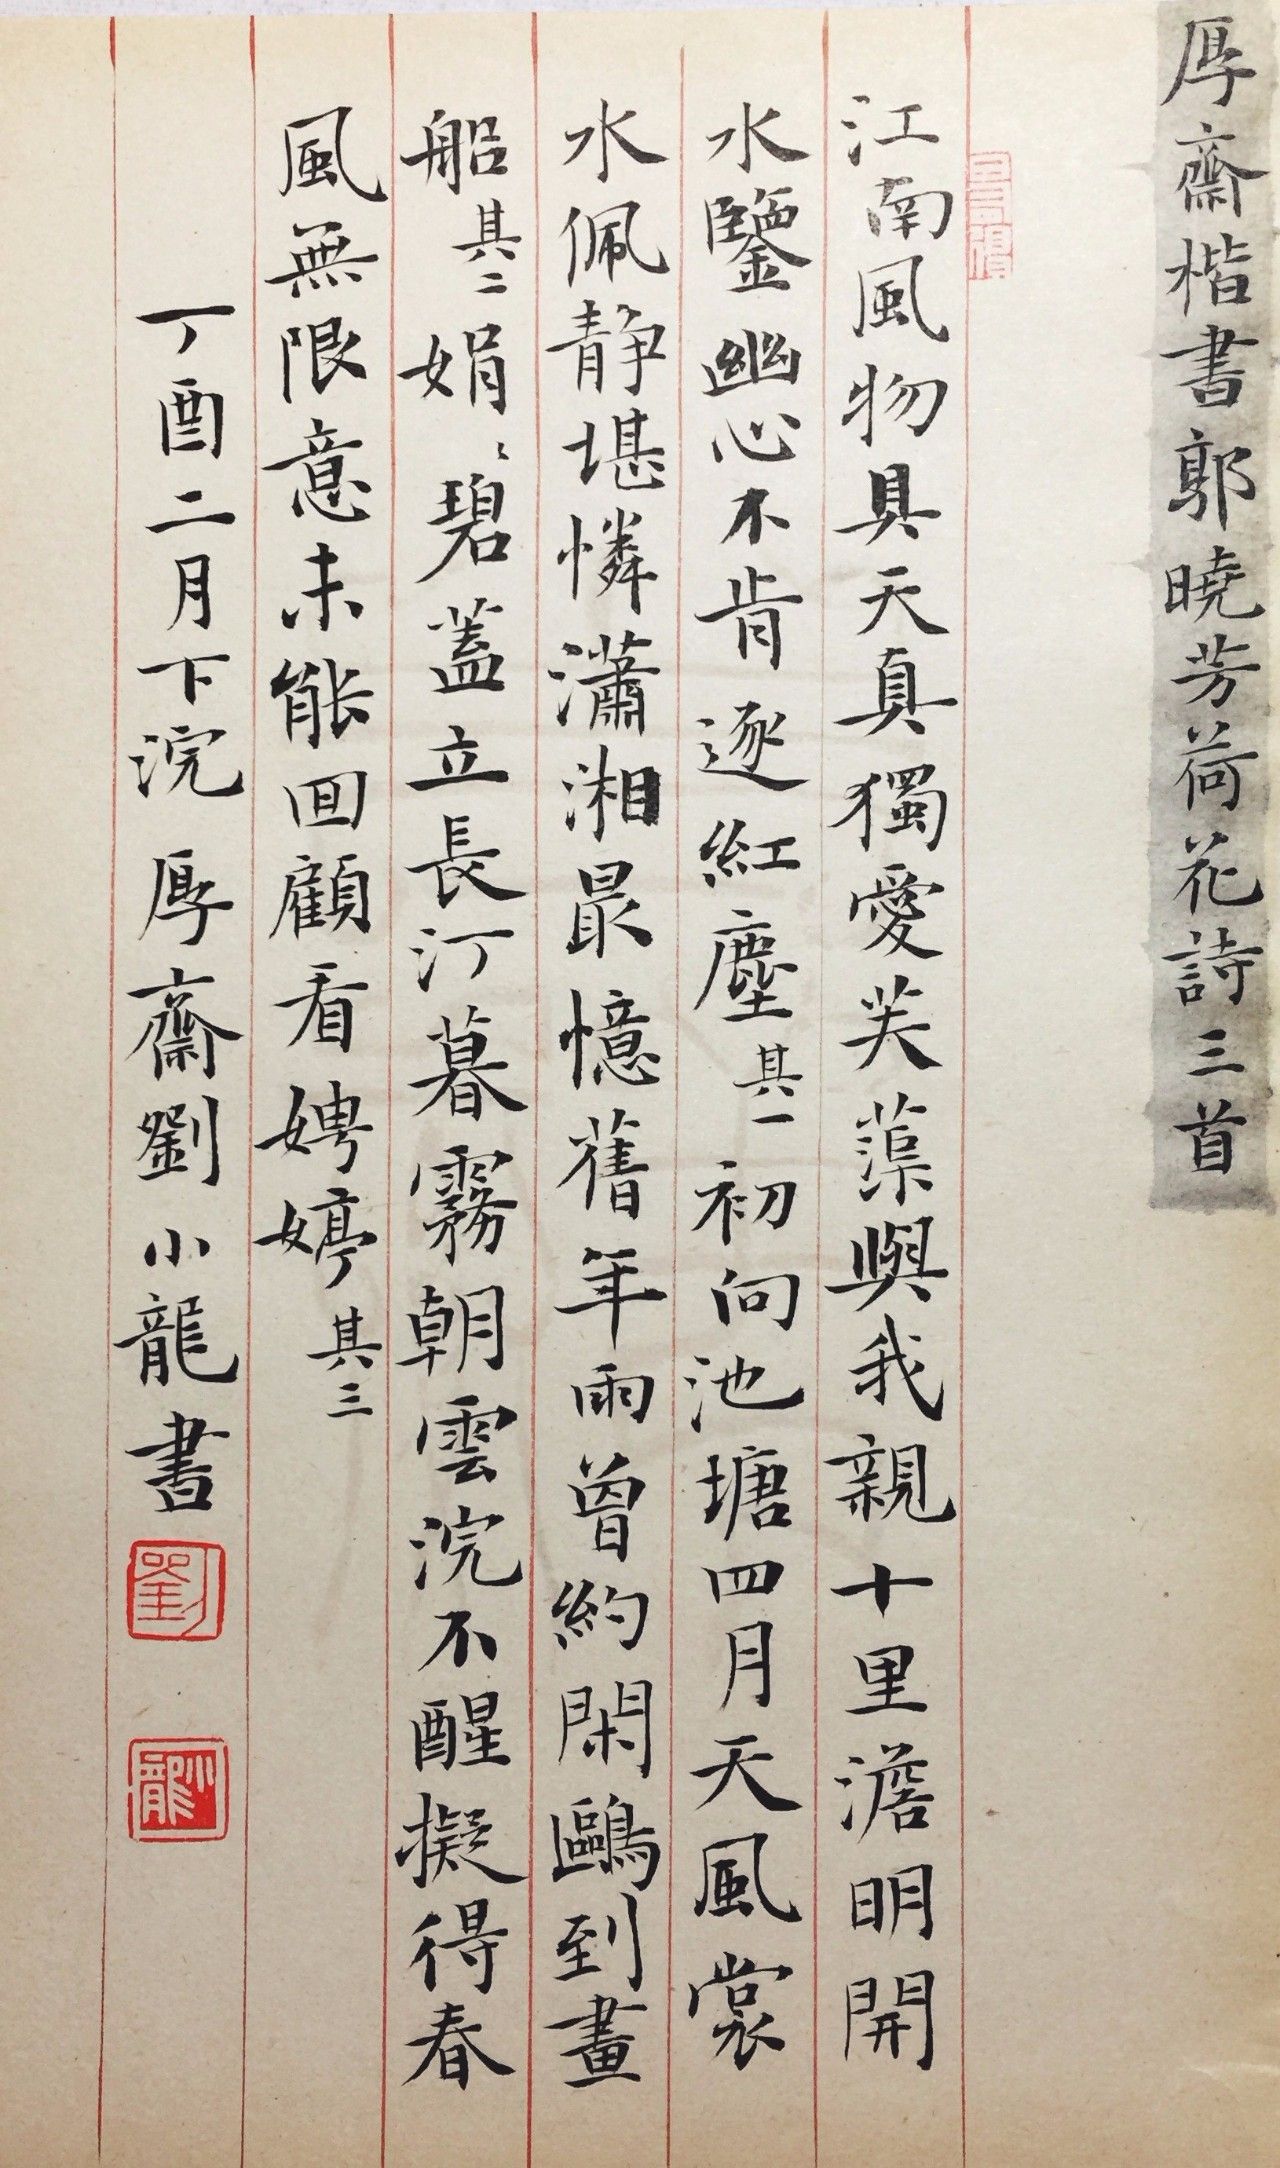 厚齋楷書郭曉芳荷花詩三首
江南風物具天真獨愛芙蕖與我親十里澹明開
水鑒幽心不肯逐紅塵其一初向池塘四月天風裳
水佩靜堪憐瀟湘最憶舊年雨曾約閑鷗到畫
船其二娟〻碧蓋立長汀暮霧朝雲浣不醒擬得春
風無限意未能回顧看娉婷其三
丁酉二月下浣厚齋劉小龍書
劉
小龍